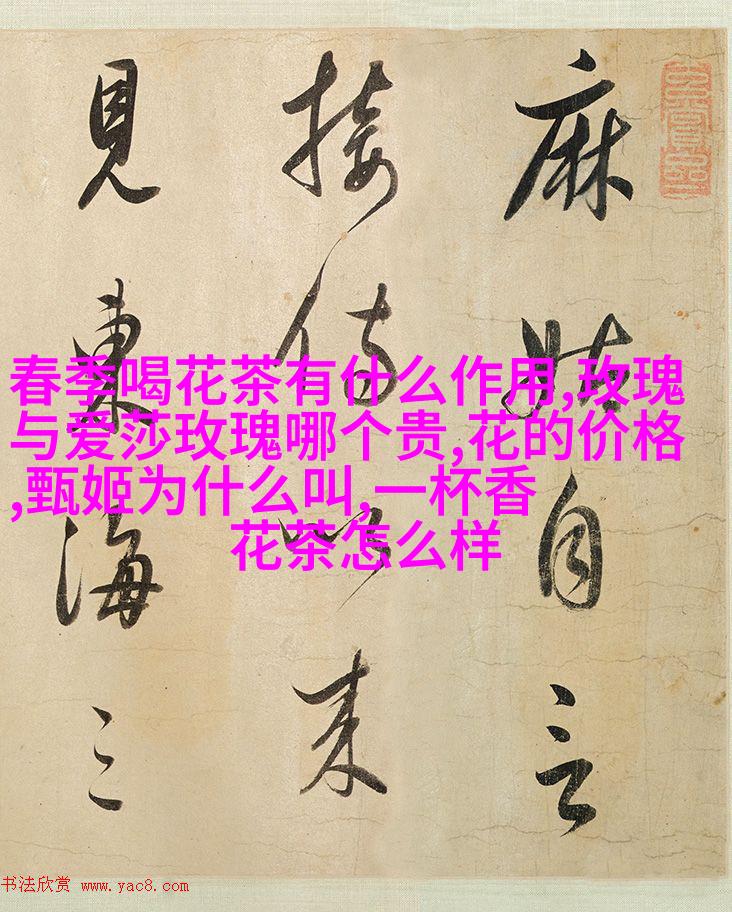 麻姑自言
接侍以来
見東海三
春季喝花茶有什么作用,玫瑰
与爱莎玫瑰哪个贵,花的价格
,甄姬为什么叫,一杯香
花茶怎么样
书法欣赏 www.yac8.com